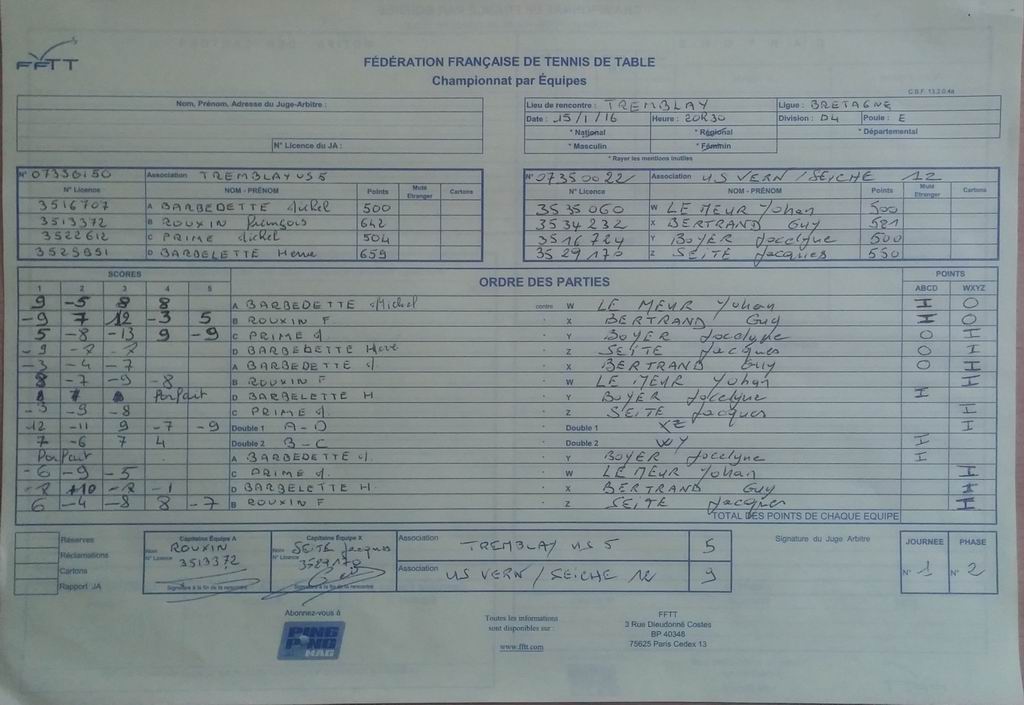 FFTT
FÉDÉRATION FRANÇAISE DE TENNIS DE TABLE
Championnat par Équipes
C.B.F. 13.2.0.48
Nom, Prénom, Adresse du Juge-Arbitre :
N° Licence du JA :
Lieu de rencontre : TREMBLAY Ligue : BRETAGNE
Date : 15/1/16 Heure : 20H30 Division : D4 Poule : E
* National * Régional * Départemental
* Masculin * Féminin
* Rayer les mentions inutiles
N° 07350150 Association TREMBLAY US 5
N° Licence NOM - PRÉNOM Points Muté Etranger Cartons
3516707 A BARBEDETTE Michel 500
3513372 B ROUXIN François 642
3522612 C PRIME Michel 504
D BARBELETTE Herve 659
N° 07350022 Association US VERN / SEICHE 12
N° Licence NOM - PRÉNOM Points Muté Etranger Cartons
3535060 W LE MEUR Yohan 500
3534232 X BERTRAND Guy 521
3516724 Y BOYER Jocelyne 500
3529170 Z SEITE Jacques 550
SCORES ORDRE DES PARTIES POINTS
1 2 3 4 5 ABCD WXYZ
9 -5 8 8 A BARBEDETTE Michel contre W LE MEUR Yohan I O
-9 7 12 -3 5 B ROUXIN F X BERTRAND Guy I O
5 -8 -13 9 -9 C PRIME M. Y BOYER Jocelyne O I
-9 -7 -7 D BARBEDETTE Hervé Z SEITE Jacques O I
-3 -4 -7 A BARBEDETTE M X BERTRAND Guy O I
8 -7 -9 -8 B ROUXIN F W LE MEUR Yohan I
8 7 Forfait D BARBELETTE H Y BOYER Jocelyne I
-3 -9 -8 C PRIME M. Z SEITE Jacques I
-12 -11 9 -7 -9 Double 1 A-D Double 1 XZ I
7 -6 7 4 Double 2 B-C Double 2 WY I
Forfait A BARBEDETTE M. Y BOYER Jocelyne I
-6 -9 -5 C PRIME M. W LE MEUR Yohan I
+10 -1 D BARBELETTE H. X BERTRAND Guy I
6 -4 -8 8 -7 B ROUXIN F Z SEITE Jacques I
TOTAL DES POINTS DE CHAQUE EQUIPE
Réserves
Réclamations
Cartons
Rapport JA
Capitaine Équipe A
Nom ROUXIN
N° Licence 3513372
Signature à la fin de la rencontre
Capitaine Équipe X
Nom SEITE Jacques
N° Licence 3529170
Signature à la fin de la rencontre
Association TREMBLAY US 5 5
Association US VERN / SEICHE 12 9
Signature du Juge Arbitre
JOURNEE PHASE
N° 1 N° 2
Abonnez-vous à
PING PONG MAG
Toutes les informations
sont disponibles sur :
www.fftt.com
FFTT
3 Rue Dieudonné Costes
BP 40348
75625 Paris Cedex 13